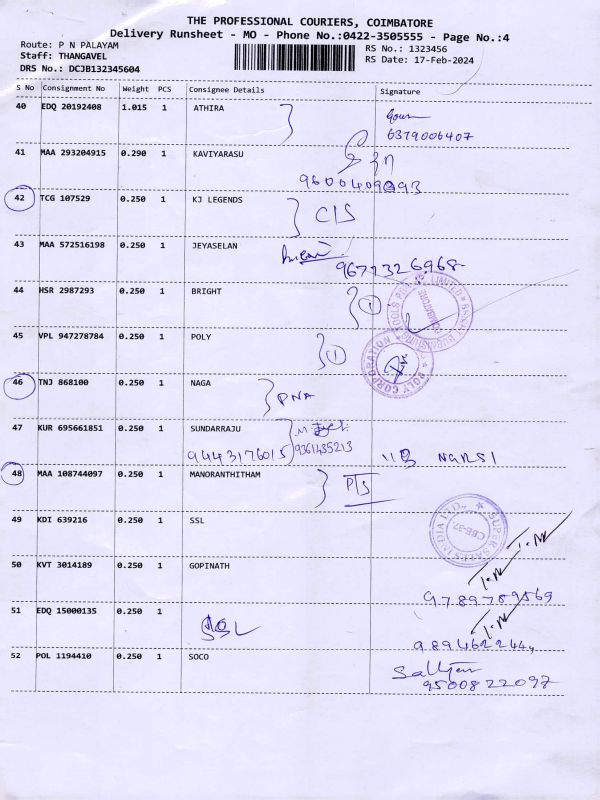 THE PROFESSIONAL COURIERS, COIMBATORE
Delivery Runsheet - MO - Phone No.:0422-3505555 - Page No.:4
Route: P N PALAYAM
Staff: THANGAVEL
DRS No.: DCJB132345604
RS No.: 1323456
RS Date: 17-Feb-2024
S No Consignment No Weight PCS Consignee Details Signature
40 EDQ 20192408 1.015 1 ATHIRA
6379006407
41 MAA 293204915 0.290 1 KAVIYARASU
9600409093
42 TCG 107529 0.250 1 KJ LEGENDS
C/S
43 MAA 572516198 0.250 1 JEYASELAN
9677326968
44 HSR 2987293 0.250 1 BRIGHT
1
45 VPL 947278784 0.250 1 POLY
1
POLY CORPORATION
46 TNJ 868100 0.250 1 NAGA
PNA
47 KUR 695661851 0.250 1 SUNDARRAJU
9443176015 9361435213
48 MAA 108744097 0.250 1 MANORANTHITHAM
PTS
49 KDI 639216 0.250 1 SSL
SUPER SALES INDIA LTD.
CBE-37
50 KVT 3014189 0.250 1 GOPINATH
9789789569
51 EDQ 15000135 0.250 1
SSL
52 POL 1194410 0.250 1 SOCO
9500822097